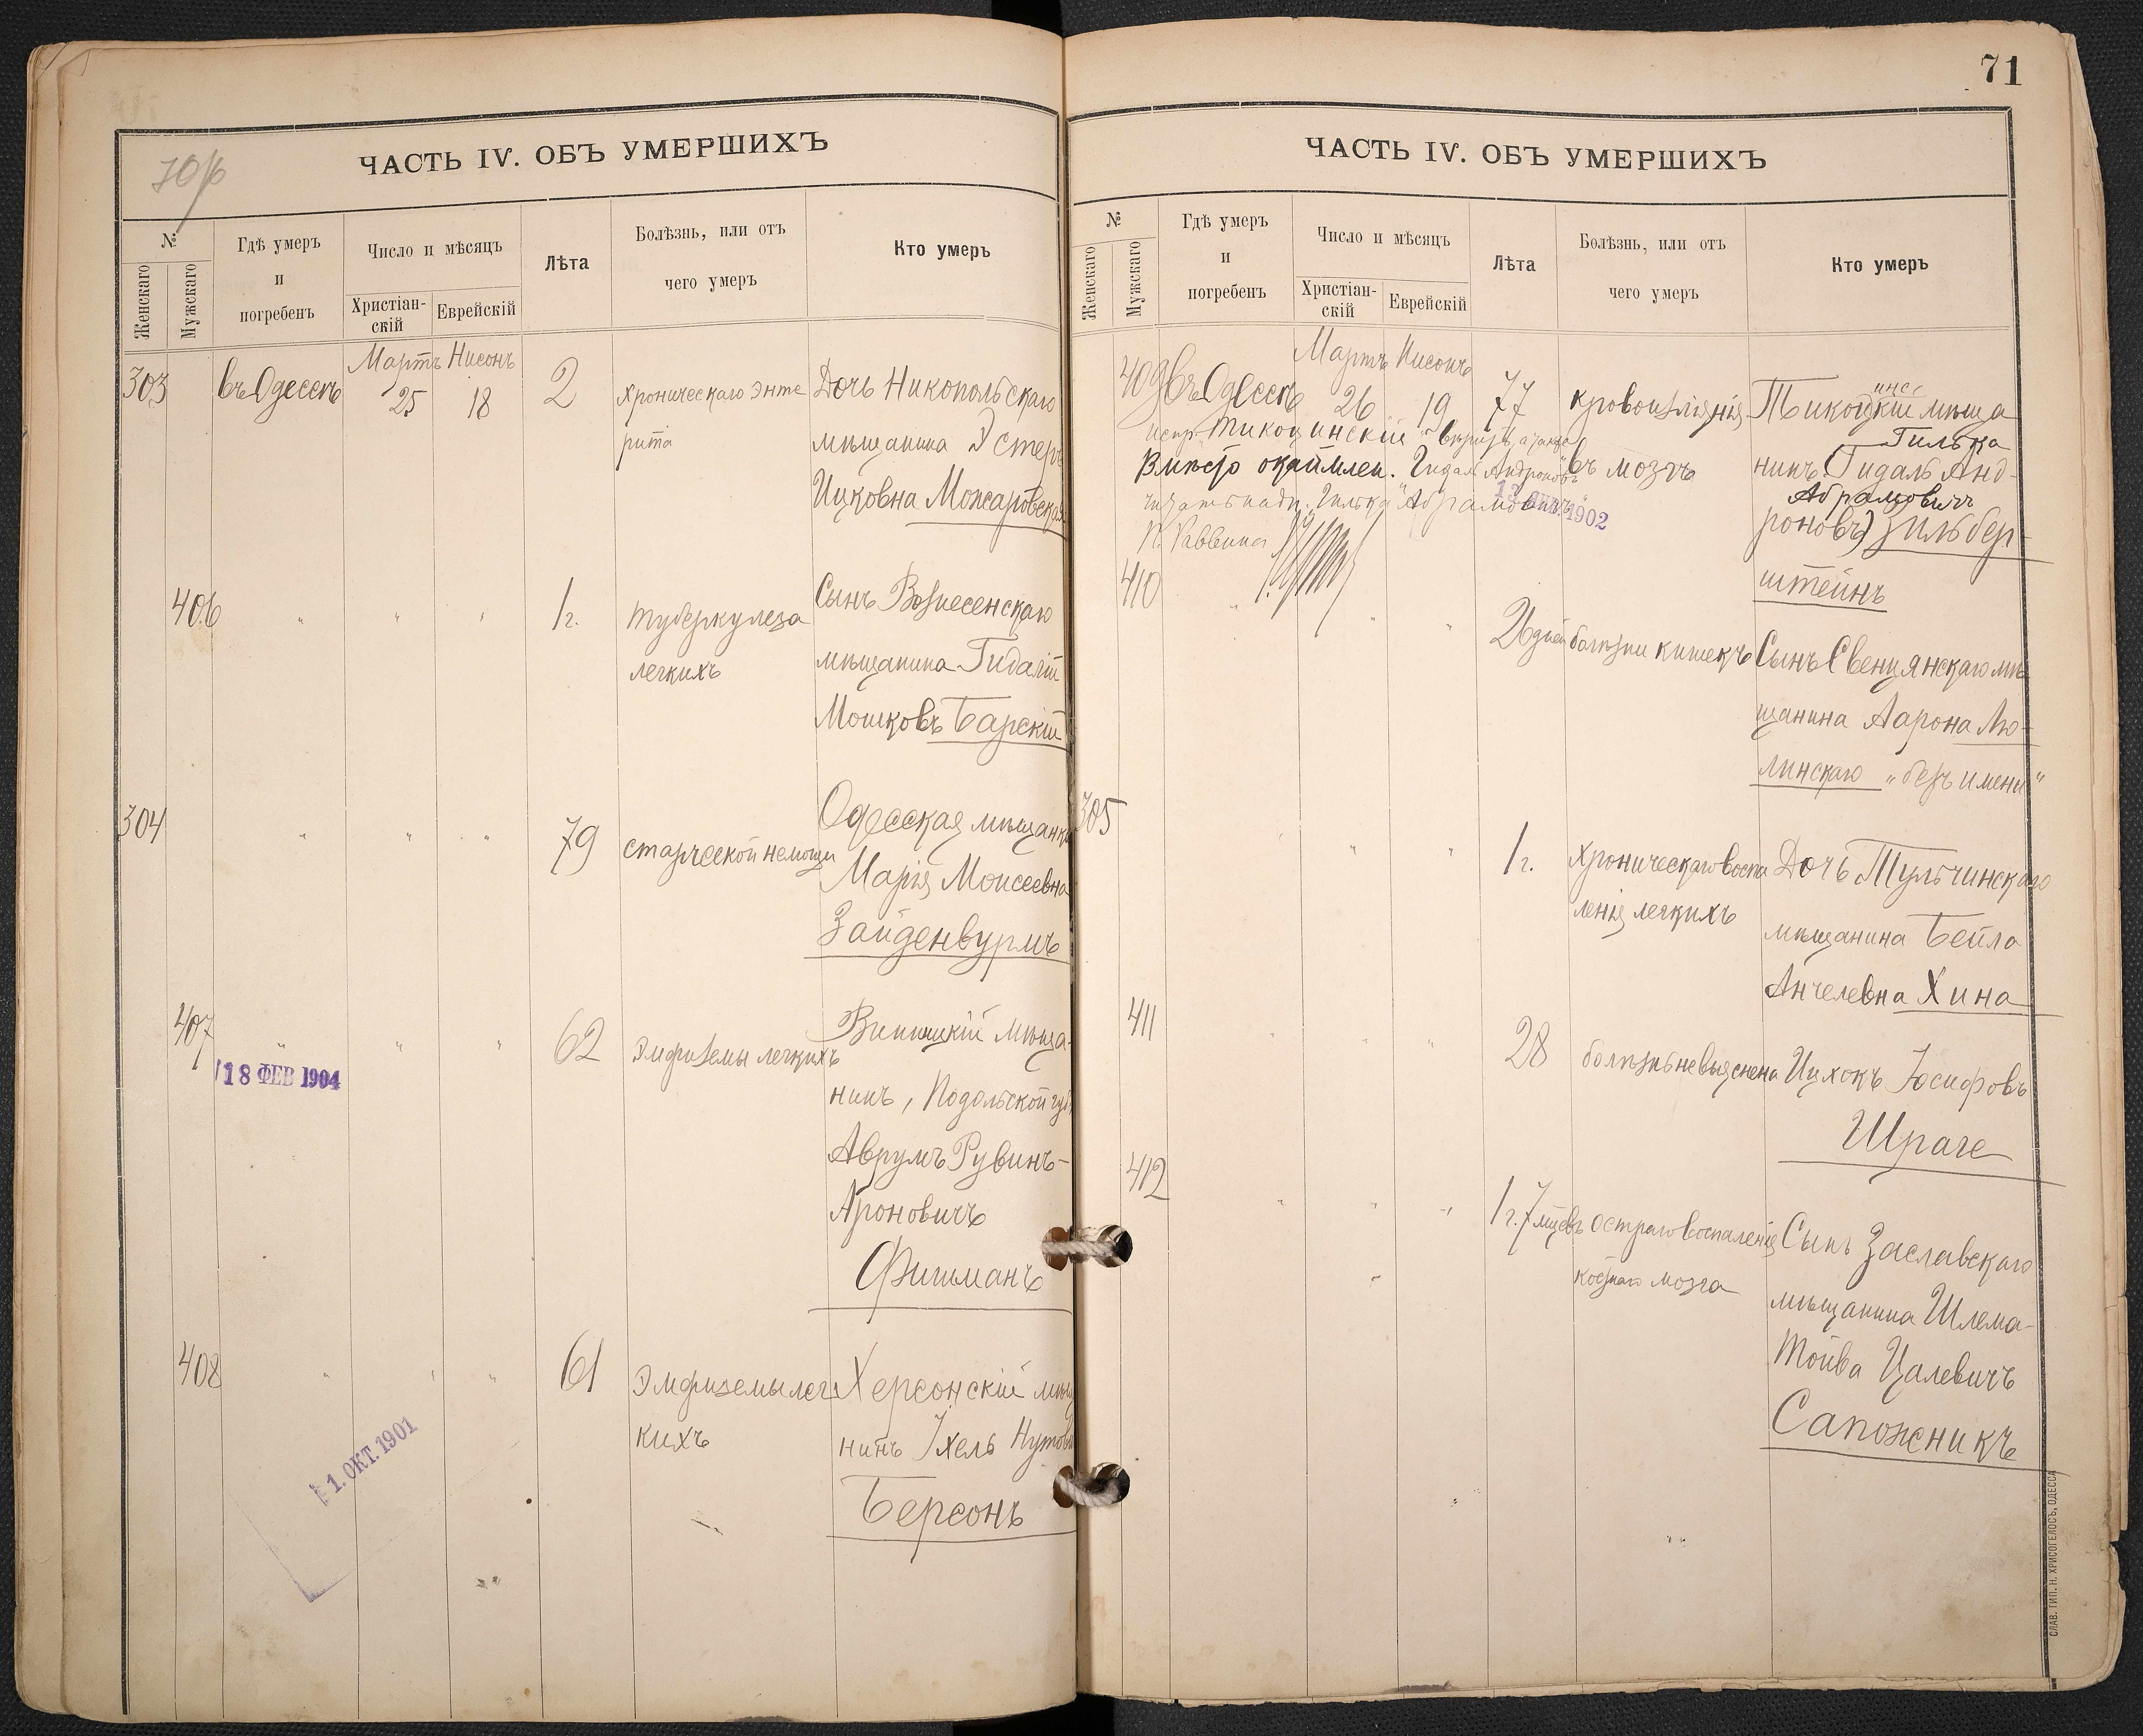 ЧАСТЬ IV. ОБЪ УМЕРШИХЪ
№
Женскаго
Мужскаго
Гдѣ умеръ
и
погребенъ
Число и мѣсяцъ
Христіан-
скій
Еврейскій
Лѣта
Болѣзнь, или отъ
чего умеръ
Кто умеръ
Мартъ Нисонъ
303 въ Одессѣ 25 18 2 хроническаго энте Дочь Никопольскаго
рита мѣщанина Эстеръ
ИцковнаМожаровская
406 " " " 1 г. туберкулеза Сынъ Вознесенскаго
легкихъ мѣщанина Гидалій
Мошковъ Барскій
304 " " " 79 старческой немощи Одесская мѣщанка
Марія Моисеевна
Зайденвурмъ
407 " " " 62 эмфиземы легкихъ Винницкій мѣща-
18 ФЕВ 1904
нинъ, Подольской губ
Аврумъ Рувинъ-
Ароновичъ
Фишманъ
408 " " " 61 Эмфиземы лег Херсонскій мѣща
кихъ нинъ Ихель Нутов
Берсонъ
1. ОКТ. 1901
71
ЧАСТЬ IV. ОБЪ УМЕРШИХЪ
№
Женскаго
Мужскаго
Гдѣ умеръ
и
погребенъ
Число и мѣсяцъ
Христіан-
скій
Еврейскій
Лѣта
Болѣзнь, или отъ
чего умеръ
Кто умеръ
Мартъ Нисонъ
409 въ Одессѣ 26 19 77 кровоизліянія Тикоцкій мѣща
инс
испр. Тикоцинскій
Гилька
Вмѣсто окаймлен. Гидаль Андроновъ въ мозгъ нинъ (Гидаль Анд-
читать надп. Гилька Абрамовичъ
Абрамовичъ
1902
роновъ) Зильбер-
штейнъ
410 " " " 26 дней болѣзни кишекъ Сынъ Свенцянскаго мѣ
щанина Аарона Лю-
линскаго „безъ имени"
305 " " 1 г. хроническаго воспа Дочь Тульчинскаго
ленія легкихъ мѣщанина Бейла
Анчелевна Хина
411 " " " 28 болѣзнь невыяснена Ицхокъ Іосифовъ
Шраге
412 " " " 1 г. 7 мцевъ остраго воспаленія Сынъ Заславскаго
мозга мѣщанина Шлема-
Тойва Цалевичъ
Сапожникъ
СЛАВ. ТИП. Н. ХРИСОГЕЛОСЪ, ОДЕССА